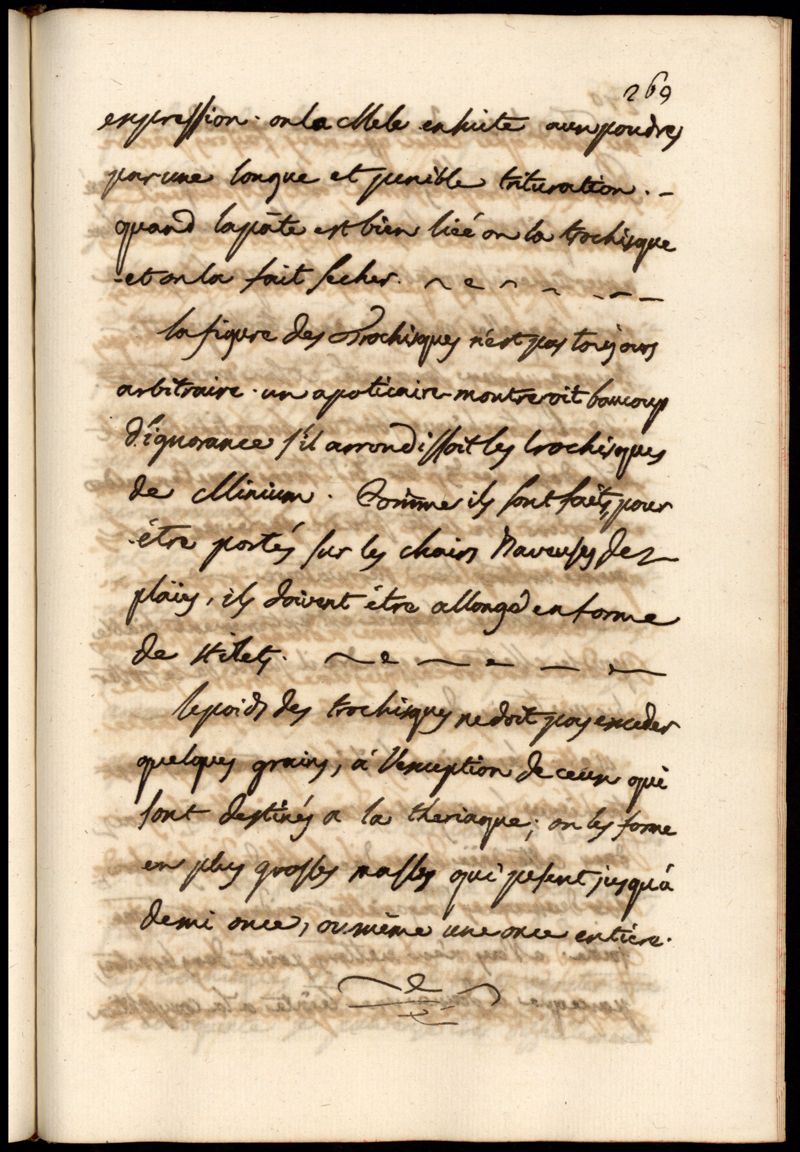 269
expression. on la Mele ensuite aux poudres
par une longue et penible trituration. -
quand la pâte est bien liée on la trochisque
et on la fait secher.
la figure des Trochisques n'est pas toujours
arbitraire. un apoticaire montreroit baucoup
d'ignorance s'il arrondissoit les trochisques
de Minium. Comme ils sont faits pour
être portés sur les chairs baveuses des
plaïes, ils doivent être allongé en forme
de stilets.
le poids des trochisques ne doit pas exceder
quelques grains, à l'exception de ceux qui
sont destinés a la theriaque; on les forme
en plus grosses masses qui pesent jusqu'à
demi once, ou même une once entière.